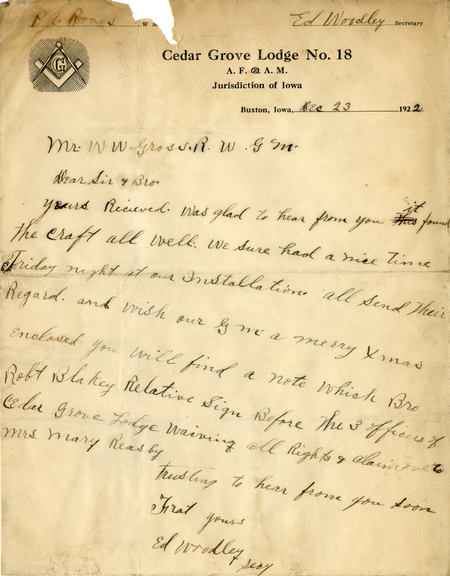 W M Ed Woodley Secretary
Cedar Grove Lodge No. 18
A. F. & A. M.
Jurisdiction of Iowa
Buxton, Iowa, Dec 23 1922
G
Mr. W W. Gross. R. W. G M.
Dear Sir & Bro
yours Recieved. was glad to hear from you it found
The craft all well. we sure had a nice time
Friday night at our Installation. all send Their
Regard. and wish our G m a merry Xmas
Enclosed you will find a note which Bro
Robt Blakey Relative Sign Before The 3 officers of
Cedar Grove Lodge Waiving all Rights & claim to
Mrs Mary Reasby
trusting to hear from you soon
Frat yours
Ed Woodley
secy